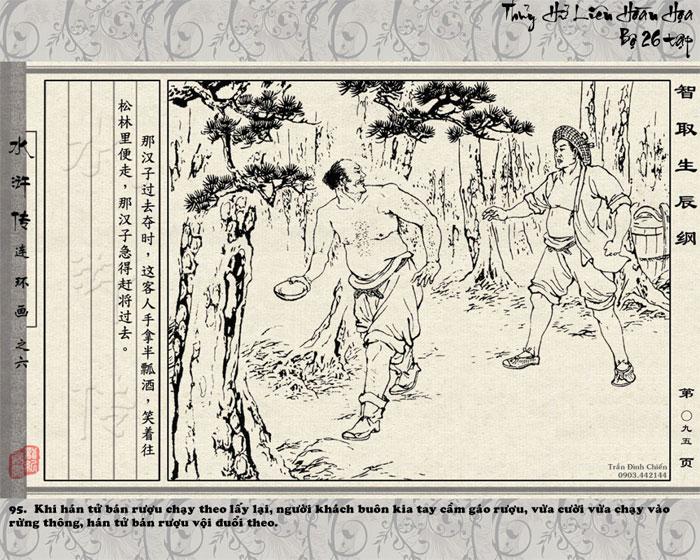 Thủy Hử Liên Hoàn Họa
Bộ 26 tập
智取生辰纲
第〇九五页
那汉子过去夺时，这客人手拿半瓢酒，笑着往
松林里便走，那汉子急得赶将过去。
水浒传连环画之六
水浒传
Trần Đình Chiến
0903.442144
95. Khi hán tử bán rượu chạy theo lấy lại, người khách buôn kia tay cầm gáo rượu, vừa cười vừa chạy vào
rừng thông, hán tử bán rượu vội đuổi theo.